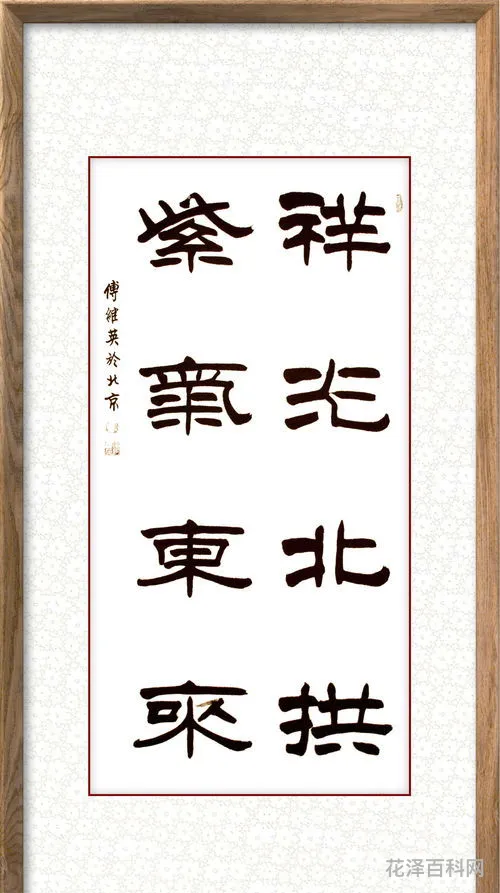 祥光北拱
紫氣東來
傅維英於北京
花泽百科网